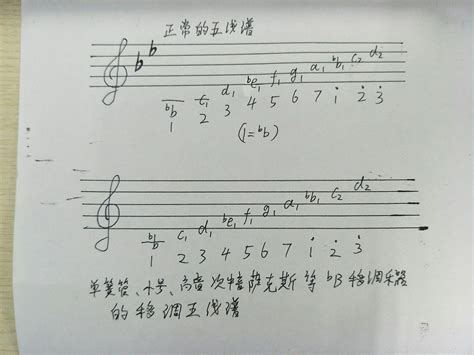 正常的五线谱
♭b c₁ d₁ ♭e₁ f₁ g₁ a₁ ♭b₁ c₂ d₂
1 2 3 4 5 6 7 i 2̇ 3̇
(1=♭b)
♭b c₁ d₁ ♭e₁ f₁ g₁ a₁ ♭b₁ c₂ d₂
1 2 3 4 5 6 7 i 2̇ 3̇
单簧管、小号、高音次中音萨克斯等♭B移调乐器
的移调五线谱